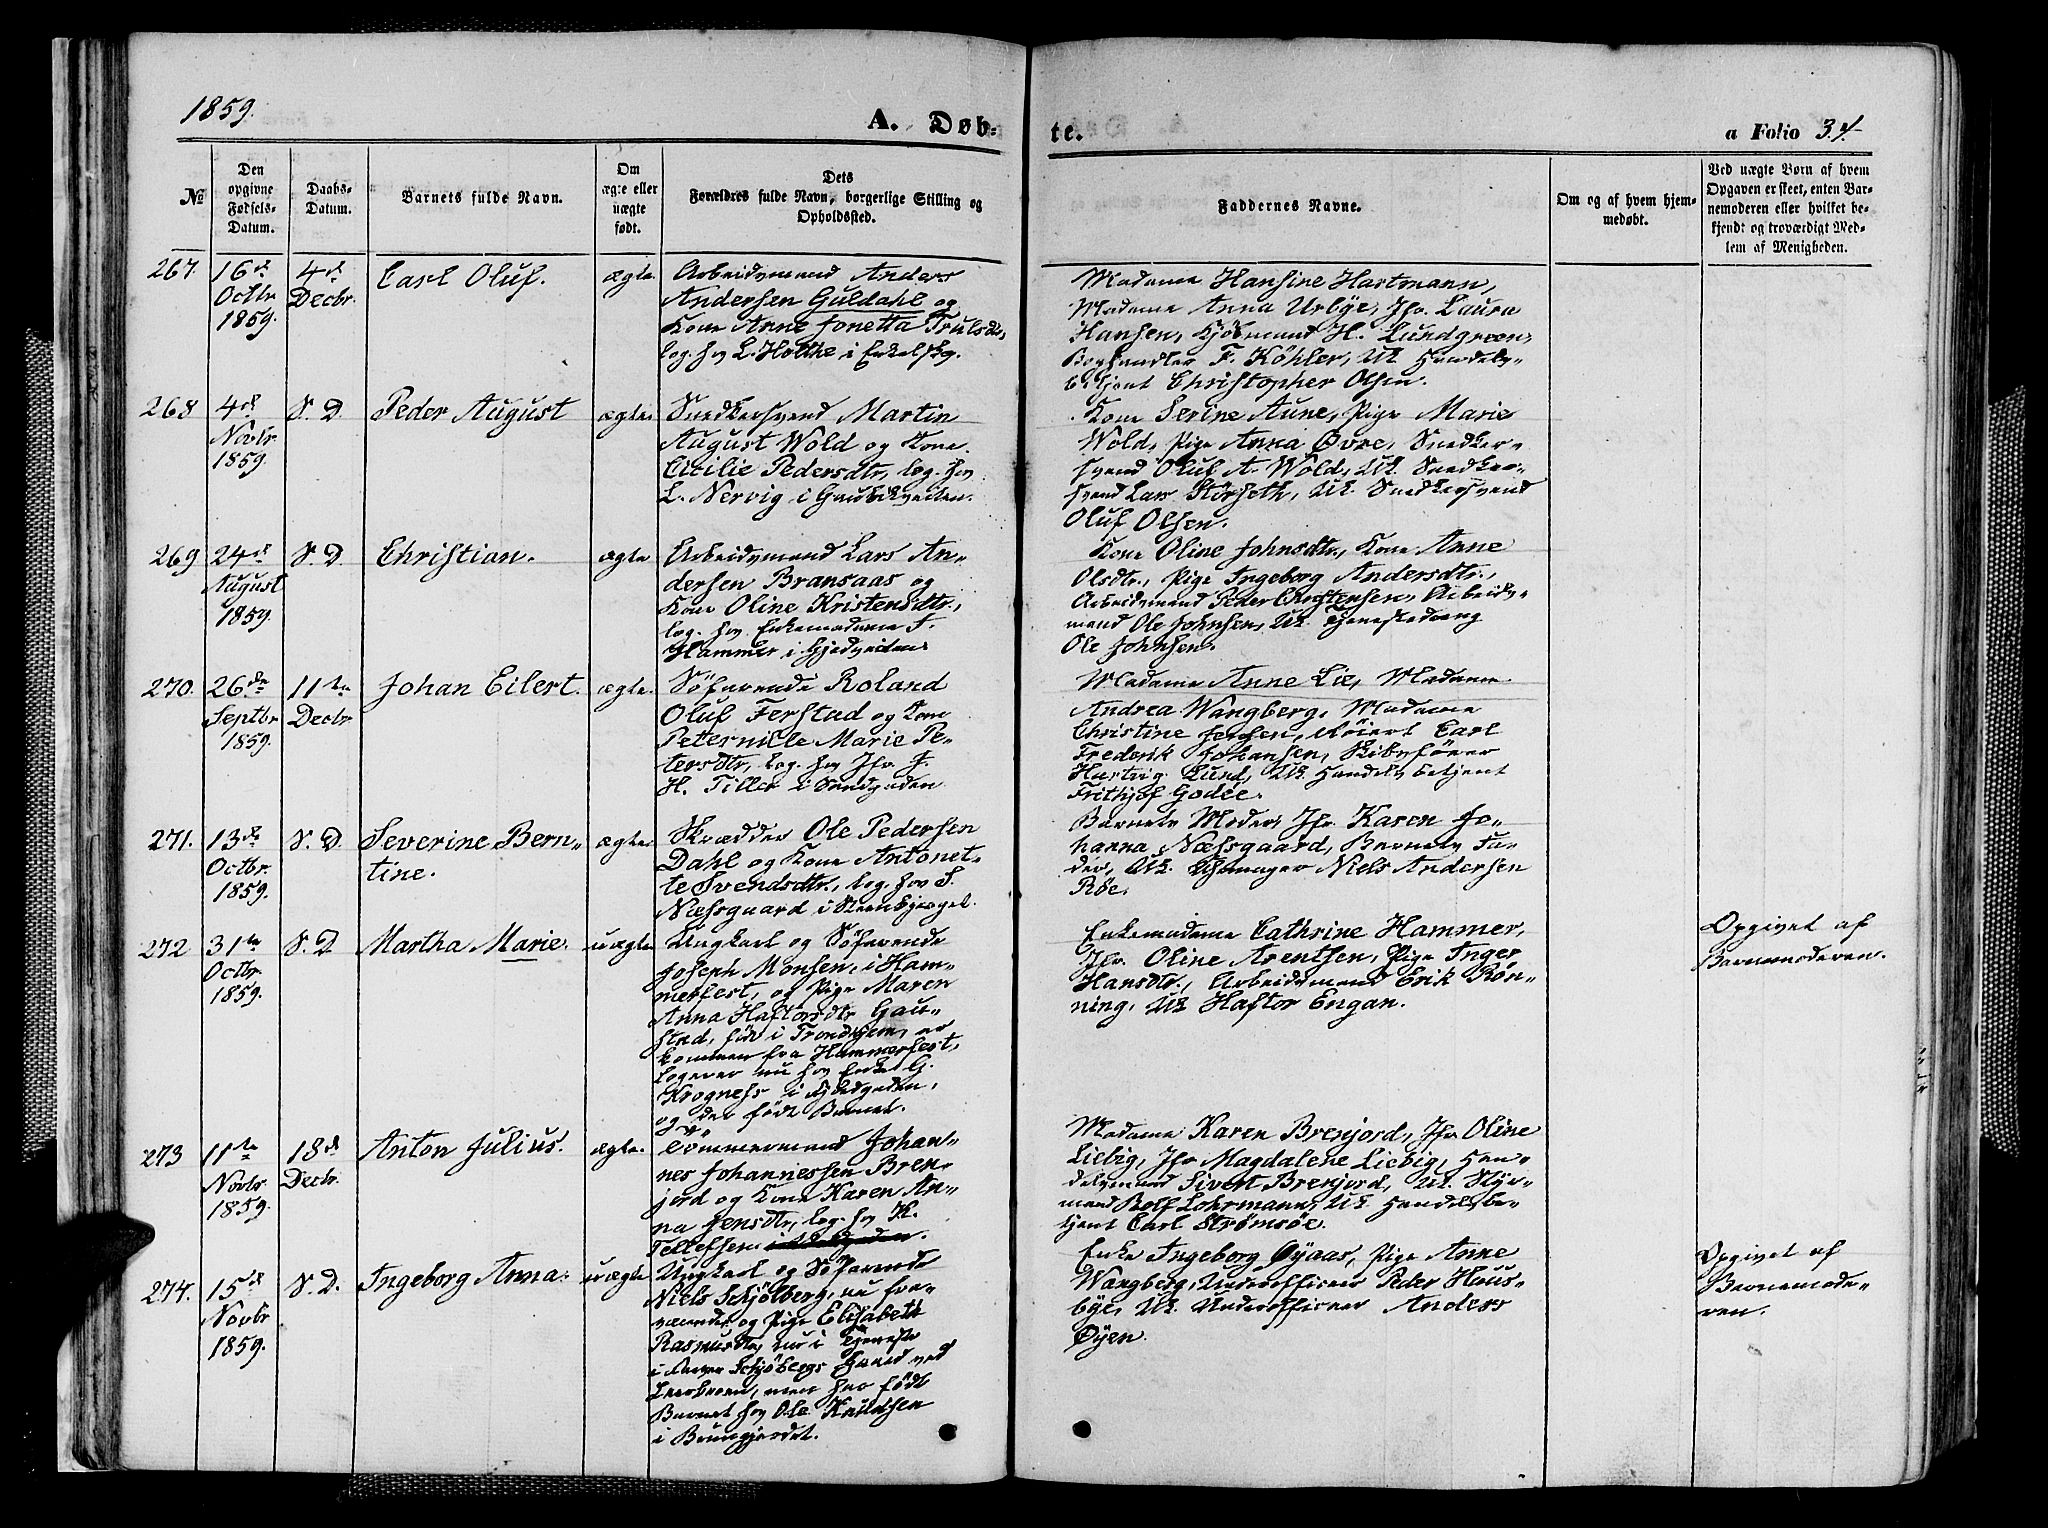 1859.
A. Døb-
te.
a Folio 34.
№
Den
opgivne
Fødsels-
Datum.
Daabs-
Datum.
Barnets fulde Navn.
Om
ægte eller
uægte
født.
Dets
Forældres fulde Navn, borgerlige Stilling og
Opholdssted.
Faddernes Navne.
Om og af hvem hjem-
medøbt.
Ved uægte Børn af hvem
Opgaven er skeet, enten Bar-
nemoderen eller hvilket be-
kjendt og troværdigt Med-
lem af Menigheden.
267.
16de
Octbr
1859.
4de
Decbr.
Carl Oluf.
ægte
Arbeidsmand Anders
Andersen Guldahl og
Kone Anne Jonetta Trulsdr,
log. hos L. Holthe i Enkelsbg.
Madame Hansine Hartmann,
Madame Anna Urbye, Jfr. Laura
Hansen, Kjøbmand H. Lundgreen,
Boghandler F. Köhler, Uk Handels-
betjent Christopher Olsen.
268
4de
Novbr.
1859.
S. D.
Peder August
ægte.
Snedkersvend Martin
August Wold og Kone
Cicilie Pedersdtr, log. hos
L. Nervig i Gaubækveiten.
Kone Serine Aune, Pige Marie
Wold, Pige Anna Øvre, Snedker-
svend Oluf A. Wold, Uk. Snedker-
svend Lars Störseth, Uk. Snedkersvend
Oluf Olsen.
269
24de
August
1859.
S. D.
Christian.
ægte
Arbeidsmand Lars An-
dersen Bransaas og
Kone Oline Kristensdtr.,
log. hos Enkemadame F.
Hammer i Gjedveiten.
Kone Oline Johnsdtr., Kone Anne
Olsdtr., Pige Ingeborg Andersdtr.,
Arbeidsmand Peder Christensen, Arbeids-
mand Ole Johnsen, Uk. Tjenestedreng
Ole Johnsen.
270.
26de
Septbr
1859.
11te
Decbr
Johan Eilert.
ægte.
Søfarende Roland
Oluf Ferstad og Kone
Peternille Marie Pe-
tersdtr, log. hos Jfr. J.
H. Tiller i Sandgaden
Madame Anne Lie, Madame
Andrea Wangberg, Madame
Christine Jensen, Møiert Carl
Frederik Johansen, Skibsfører
Hartvig Lund, Uk. Handelsbetjent
Frithjof Godöe.
271.
13de
Octbr.
1859.
S. D.
Severine Bern-
tine.
ægte.
Skrædder Ole Pedersen
Dahl og Kone Antonet-
te Svendsdtr., log. hos S.
Næssgaard i Steenbjerget.
Barnets Moder, Jfr. Karen Jo-
hanna Næssgaard, Barnets Fa-
der, Uk. Uhrmager Niels Andersen
Röe.
272
31te
Octbr.
1859.
S. D
Martha Marie.
uægte
Ungkarl og Søfarende
Joseph Monsen, i Ham-
merfest, og Pige Maren
Anna Haftorsdtr Gau-
stad, född i Trondhjem, er
kommen fra Hammerfest,
Logerer nu hos Enke G.
Krogness i Kjødgaden,
og der född Barnet.
Enkemadame Cathrine Hammer,
Jfr. Oline Arentsen, Pige Inger
Hansdtr., Arbeidsmand Erik Rön-
ning, Uk Haftor Engan.
Opgivet af
Barnemoderen.
273
11te
Novbr
1859.
18de
Decbr.
Anton Julius.
ægte.
Tömmermand Johan-
nes Johannessen Bren-
jord og Kone Karen An-
na Jensdtr, log. hos H.
Tellefsen
Madame Karen Brenjord, Jfr Oline
Liebig, Jfr Magdalene Liebig, Han-
delsmand Sivert Brenjord, Uk. Styr-
mand Rolf Lohrmann, Uk. Handelsbe-
tjent Carl Strømsöe.
274.
15de
Novbr
1859.
S. D.
Ingeborg Anna.
uægte
Ungkarl og Søfarende
Niels Schjölberg, nu fra-
værende og Pige Elisabeth
Rasmusdtr, nu i Tjeneste
i Schjöbergs Gaard ved
Leerbroen, men har födt
Barnet hos Ole Knudsen
i Brungjerdet.
Enke Ingeborg Øyaas, Pige Anne
Wangberg, Underofficier Peder Haus-
bye, Uk. Underofficier Anders
Øyen.
Opgivet af
Barnemode-
ren.